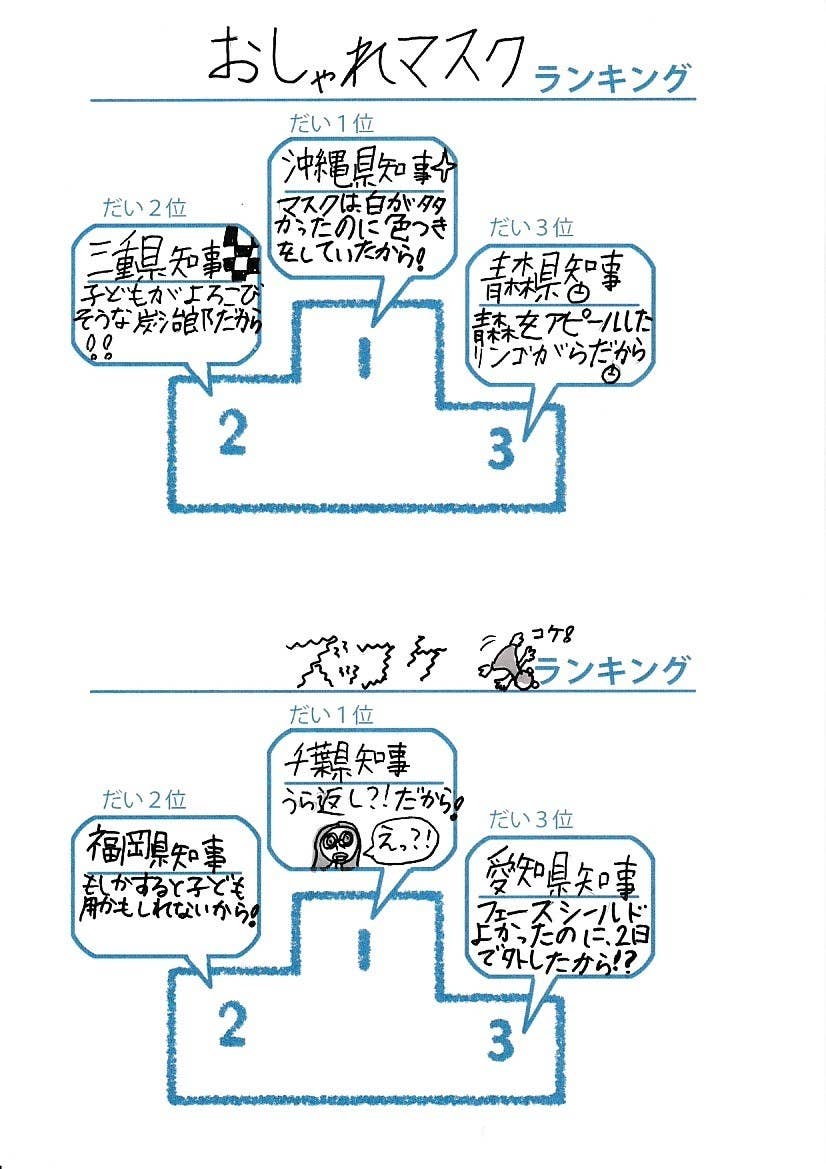 おしゃれマスクランキング
だい１位
沖縄県知事
マスクは白が多
かったのに色つき
をしていたから!
だい２位
三重県知事
子どもがよろこび
そうな炭治郎だから
!!
だい３位
青森県知事
青森をアピールした
リンゴがらだから
1
2
3
ズコッケ コケ ランキング
だい１位
千葉県知事
うら返し?!だから!
えっ?!
だい２位
福岡県知事
もしかすると子ども
用かもしれないから!
だい３位
愛知県知事
フェースシールド
よかったのに、2日
で外したから!?
1
2
3